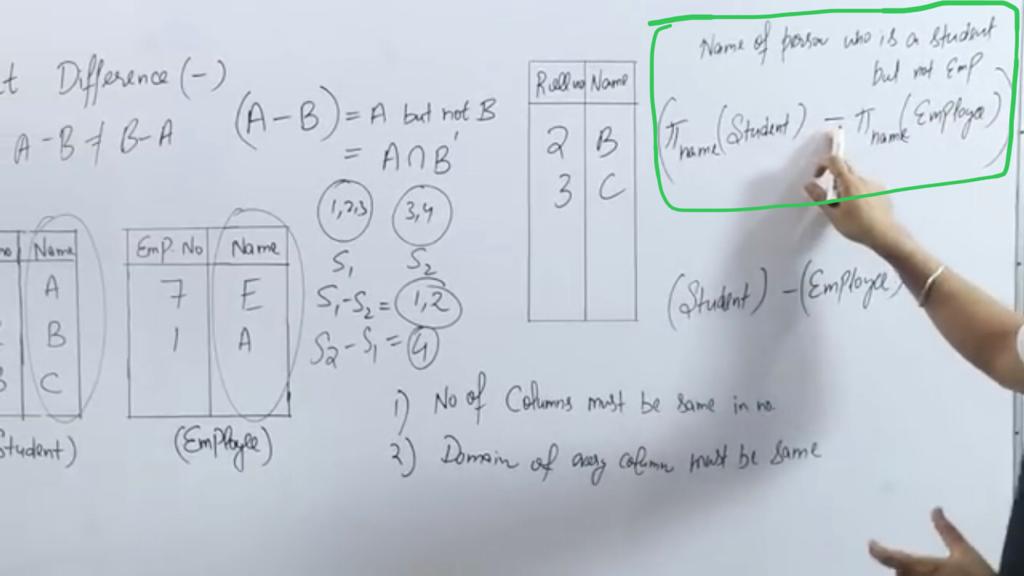 t Difference (-)
A-B ≠ B-A
(A-B) = A but not B
= A∩B'
no Name
A
B
3 C
Student)
Emp. No Name
7 E
1 A
(Employee)
1,2,3 3,4
S₁ S₂
S₁-S₂ = 1,2
S₂-S₁ = 4
Rollno Name
2 B
3 C
Name of person who is a student
but not Emp
(π name (Student) - π name (Employee))
(Student) - (Employee)
1) No of Columns must be same in no.
2) Domain of every column must be same